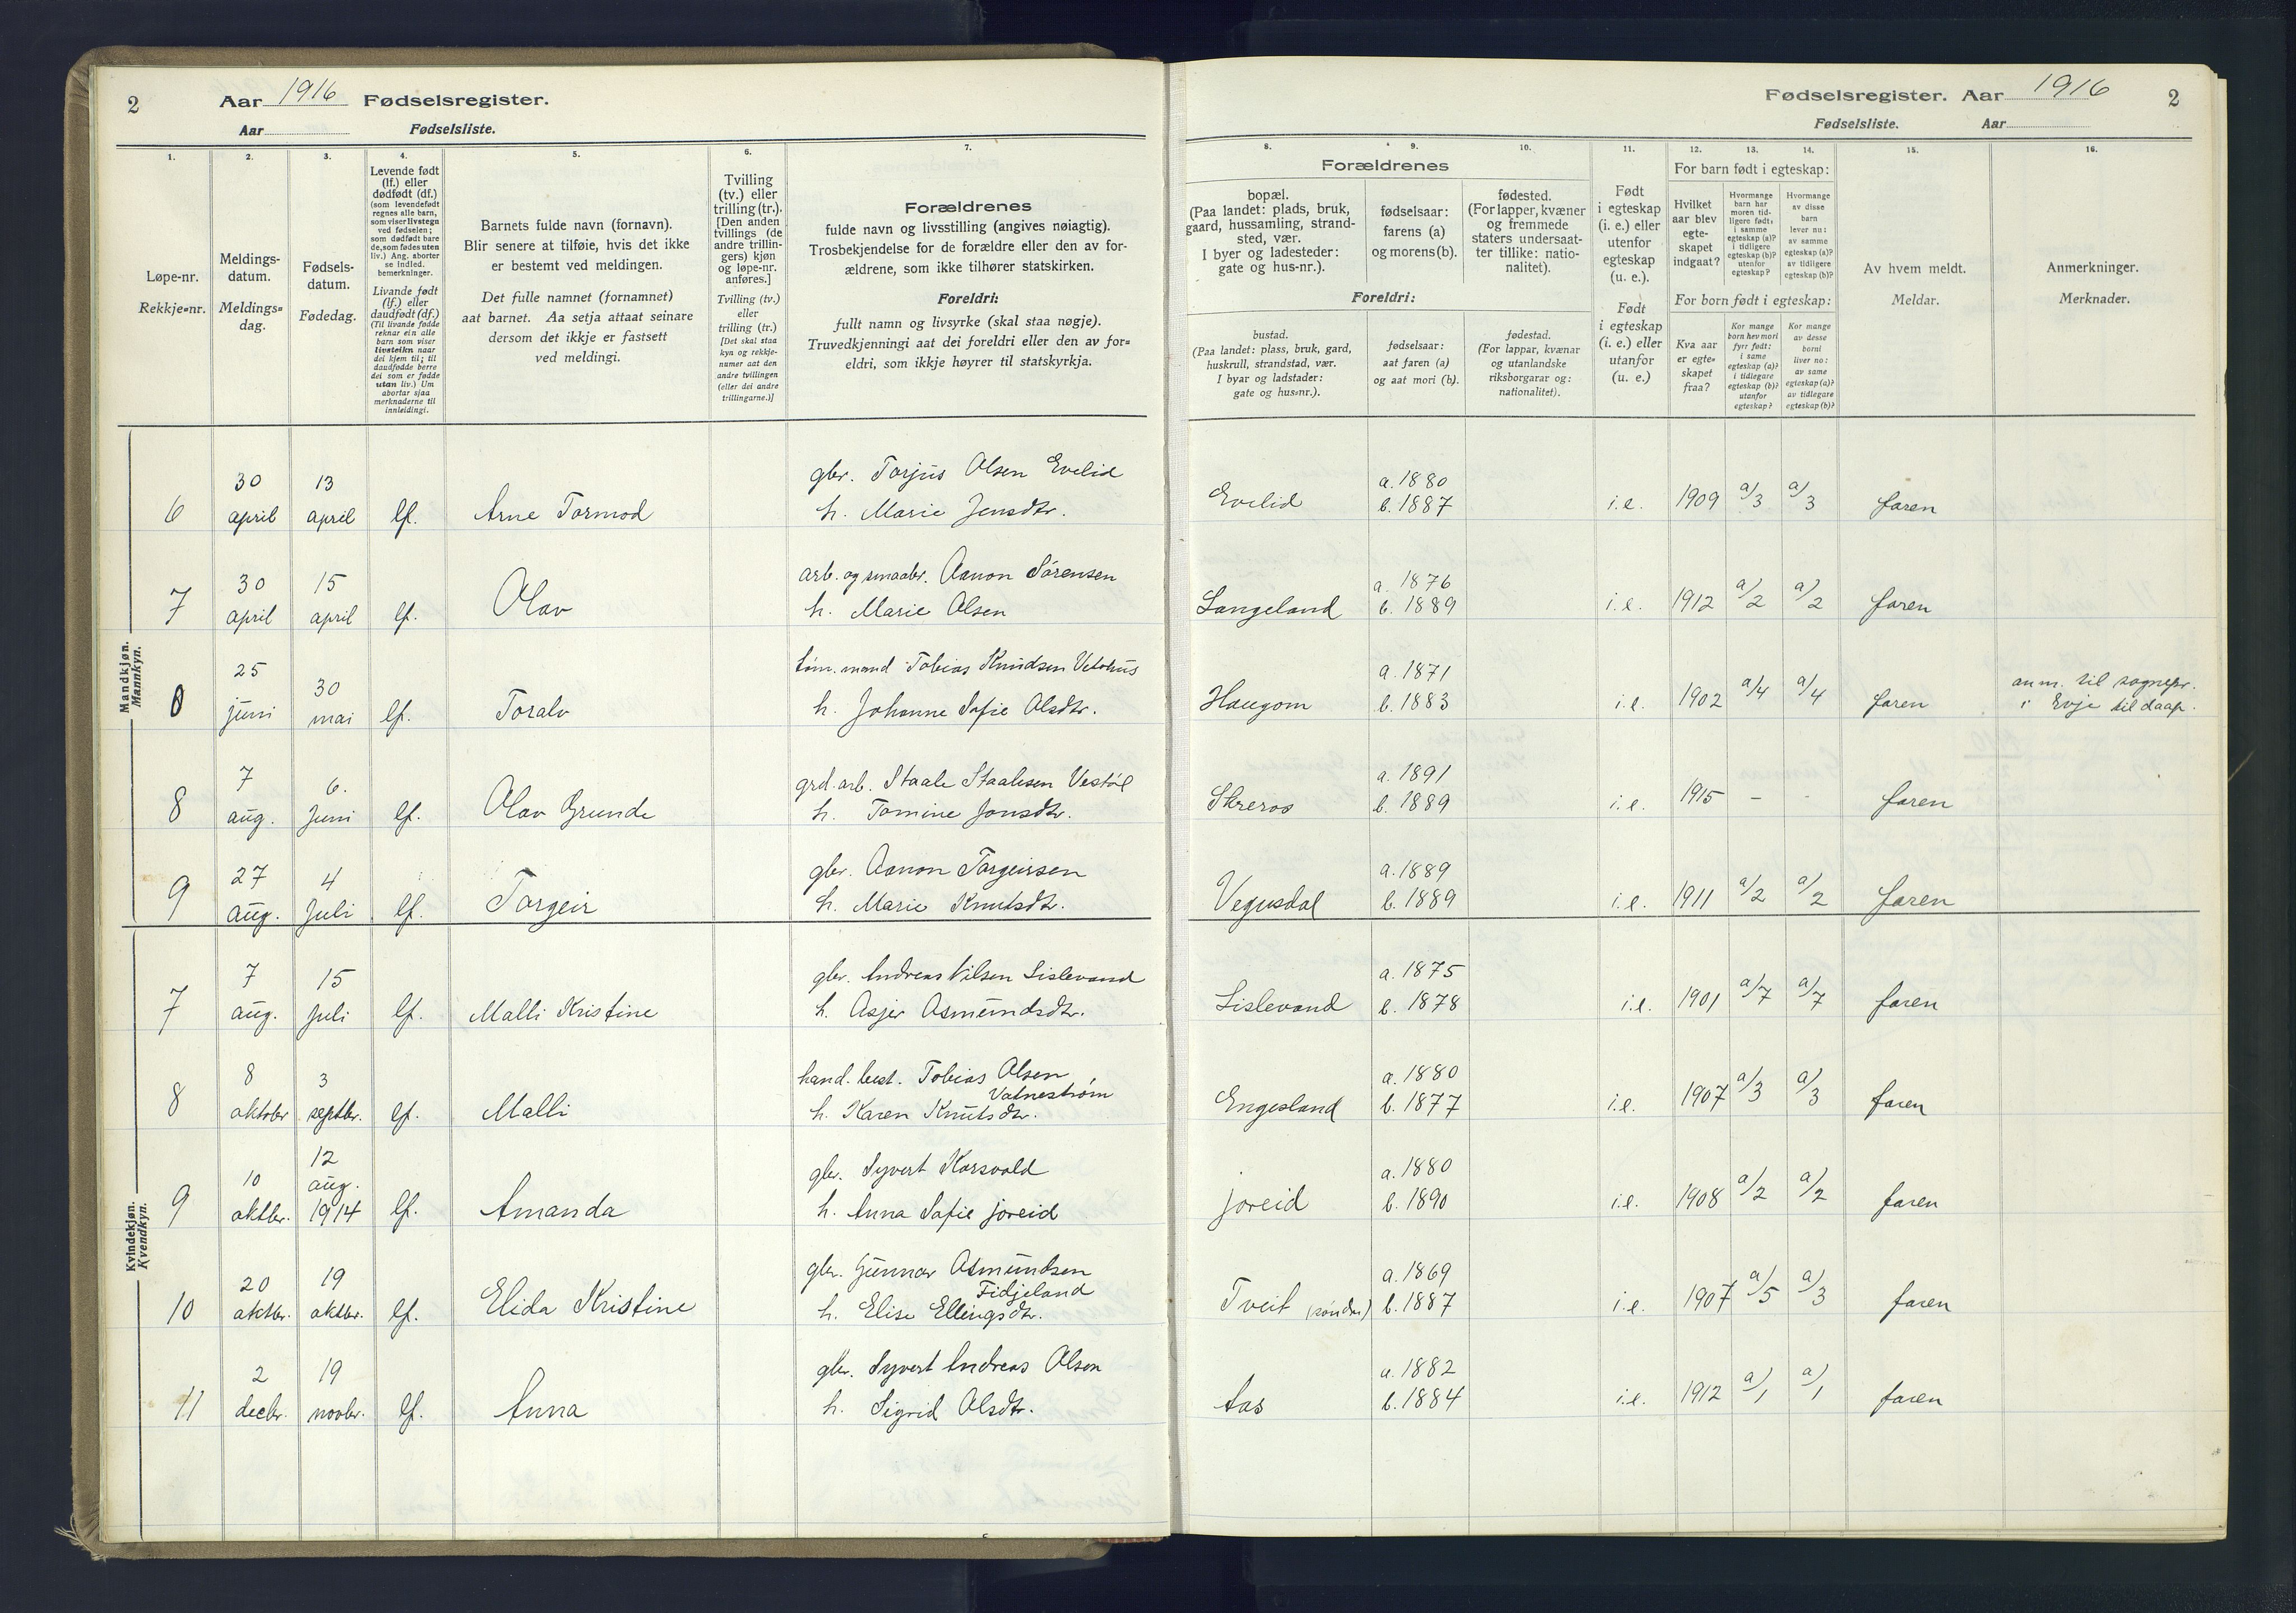 2 Aar 1916 Fødselsregister.
Aar Fødselsliste.
Fødselsregister. Aar 1916 2
Fødselsliste. Aar
1. 2. 3. 4. 5. 6. 7. 8. 9. 10. 11. 12. 13. 14. 15. 16.
Løpe-nr.
Rekkje-nr.
Meldings-
datum.
Meldings-
dag.
Fødsels-
datum.
Fødedag.
Levende født
(lf.) eller
dødfødt (df.)
(som levendefødt
regnes alle barn,
som viser livstegn
ved fødselen;
som dødfødt bare
de, som fødes uten
liv.) Ang. aborter
se indled.
bemerkninger.
Livande født
(lf.) eller
daudfødt (df.)
(Til livande fødde
reknar ein alle
barn som viser
livsteikn naar
dei kjem til; til
daudfødde berre
dei som er fødde
utan liv.) Um
abortar sjaa
merknaderne til
innleidingi.
Barnets fulde navn (fornavn).
Blir senere at tilføie, hvis det ikke
er bestemt ved meldingen.
Det fulle namnet (fornamnet)
aat barnet. Aa setja attaat seinare
dersom det ikkje er fastsett
ved meldingi.
Tvilling
(tv.) eller
trilling (tr.).
[Den anden
tvillings (de
andre trillin-
gers) kjøn
og løpe-nr.
anføres.]
Tvilling (tv.)
eller
trilling (tr.)
[Det skal staa
kyn og rekkje-
numer aat den
andre tvillingen
(eller dei andre
trillingarne.)]
Forældrenes
fulde navn og livsstilling (angives nøiagtig).
Trosbekjendelse for de forældre eller den av for-
ældrene, som ikke tilhører statskirken.
Foreldri:
fullt namn og livsyrke (skal staa nøgje).
Truvedkjenningi aat dei foreldri eller den av for-
eldri, som ikkje høyrer til statskyrkja.
Forældrenes
bopæl.
(Paa landet: plads, bruk,
gaard, hussamling, strand-
sted, vær.
I byer og ladesteder:
gate og hus-nr.).
fødselsaar:
farens (a)
og morens (b).
fødested.
(For lapper, kvæner
og fremmede
staters undersaat-
ter tillike: natio-
nalitet).
Foreldri:
bustad.
(Paa landet: plass, bruk, gard,
huskrull, strandstad, vær.
I byar og ladstader:
gate og hus-nr.).
fødselsaar:
aat faren (a)
og aat mori (b).
fødestad.
(For lappar, kvænar
og utanlandske
riksborgarar og:
nationalitet).
Født
i egteskap
(i. e.) eller
utenfor
egteskap
(u. e.).
Født
i egteskap
(i. e.) eller
utanfor
(u. e.)
For barn født i egteskap:
Hvilket
aar blev
egte-
skapet
indgaat?
Hvormange
barn har
moren tid-
ligere født:
i samme
egteskap (a)?
i tidligere
egteskap (b)?
utenfor
egteskap?
Hvormange
av disse
barn
lever nu:
av samme
egteskap (a)?
av tidligere
egteskap (b)?
For born født i egteskap:
Kva aar
er egte-
skapet
fraa?
Kor mange
born hev mori
fyrr født:
i same
egteskap (a)?
i tidlegare
egteskap (b)?
utanfor
egteskap?
Kor mange
av desse
borni
liver no:
av same
egteskap (a)?
av tidlegare
egteskap (b)?
Av hvem meldt.
Meldar.
Anmerkninger.
Merknader.
Mandkjøn.
Mannkyn.
6 30 april 13 april lf. Arne Tormod gbr. Torjus Olsen Evelid
h. Marie Jensdtr. Evelid a. 1880 b. 1887 i.e. 1909 a/3 a/3 faren
7 30 april 15 april lf. Olav arb. og smaabr. Aanon Sørensen
h. Marie Olsen Langeland a. 1876 b. 1889 i.e. 1912 a/2 a/2 faren
0 25 juni 30 mai lf. Toralv tøm. mand Tobias Knudsen Vetrhus
h. Johanne Sofie Olsdtr. Haugom a. 1871 b. 1883 i.e. 1902 a/4 a/4 faren anm. til sognepr.
i Evje til daap.
8 7 aug. 6. Juni lf. Olav Grunde grd. arb. Staale Staalesen Vestøl
h. Tomine Jonsdtr. Skreros a. 1891 b. 1889 i.e. 1915 - - faren
9 27 aug. 4 Juli lf. Torgeir gbr. Aanon Torgeirsen
h. Marie Knutsdtr. Vegusdal a. 1889 b. 1889 i.e. 1911 a/2 a/2 faren
Kvindekjøn.
Kvendkyn.
7 7 aug. 15 Juli lf. Malli Kristine gbr. Andreas Nilsen Lislevand
h. Asjer Asmundsdtr. Lislevand a. 1875 b. 1878 i.e. 1901 a/7 a/7 faren
8 8 oktober 3 septbr. lf. Malli hand. best. Tobias Olsen
Vatnestrøm
h. Karen Knutsdtr. Engesland a. 1880 b. 1877 i.e. 1907 a/3 a/3 faren
9 10 oktbr. 12 aug. 1914 lf. Amanda gbr. Syvert Korsvold
h. Anna Sofie Joreid Joreid a. 1880 b. 1890 i.e. 1908 a/2 a/2 faren
10 20 oktbr. 19 oktbr. lf. Elida Kristine gbr. Gunnar Asmundsen
Fidjeland
h. Elise Ellingsdtr. Tveit (søndre) a. 1869 b. 1887 i.e. 1907 a/5 a/3 faren
11 2 decbr. 19 novbr. lf. Anna gbr. Syvert Andreas Olsen
h. Sigrid Olsdtr. Aas a. 1882 b. 1884 i.e. 1912 a/1 a/1 faren